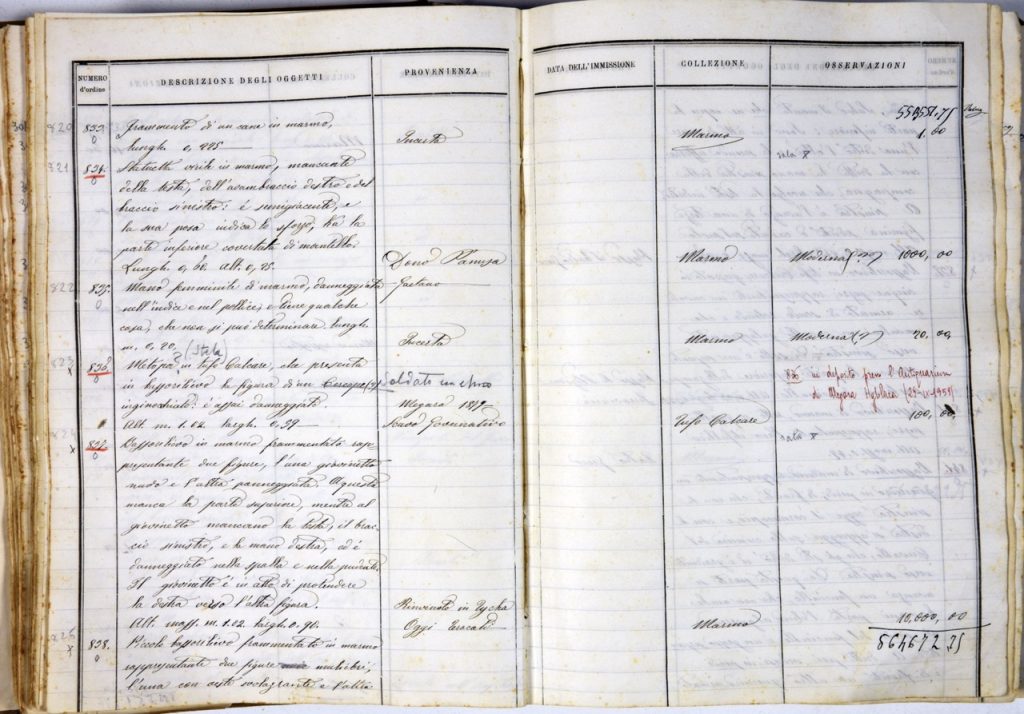 NUMERO d'ordine
DESCRIZIONE DEGLI OGGETTI
PROVENIENZA
DATA DELL'IMMISSIONE
COLLEZIONE
OSSERVAZIONI
820
833.
Frammento di un cane in marmo,
lungh. 0,225
Incerta
Marmo
1.00
821
834.
Statuetta virile in marmo, mancante
della testa, dell'avambraccio destro e del
braccio sinistro: è semigiacente, e
la sua posa indica lo sforzo, ha la
parte inferiore covertata di mantello.
Lungh. 0,60. Alt. 0,25.
Dono
Gaetano
sala X
Marmo
Moderna (?)
1000,00
822
835.
Mano femminile di marmo, danneggiata
nell'indice e nel pollice, e tiene qualche
cosa, che non si può determinare lungh.
m. 0,20.
Incerta
Marmo
Moderna (?)
20,00
823
836.
Metopa? (Stele) in tufo Calcare, che presenta
in bassorilievo la figura di un (?) Soldato
inginocchiato: è assai danneggiata.
Alt. m. 1.02. largh. 0,59
Megara 1879
Scavo Governativo
Tufo Calcare
in deposito presso l'Antiquarium
di Megara Hyblaea (25-IX-1959)
100,00
837.
Bassorilievo in marmo frammentato rap-
presentante due figure, l'una giovinetto
nudo e l'altra panneggiata. A questa
manca la parte superiore, mentre al
giovinetto mancano la testa, il brac-
cio sinistro, e la mano destra, ed è
danneggiato nelle spalle e nelle
Il giovinetto è in atto di protendere
la destra verso l'altra figura.
Alt. mass. m. 1.02. largh. 0.90.
Rinvenuto in Tycha
Oggi Teracati
sala X
Marmo
10,000,00
564672 75
825
838.
Piccolo bassorilievo frammentato in marmo
rappresentante due figure muliebri,
l'una con veste svolazzante e l'altra